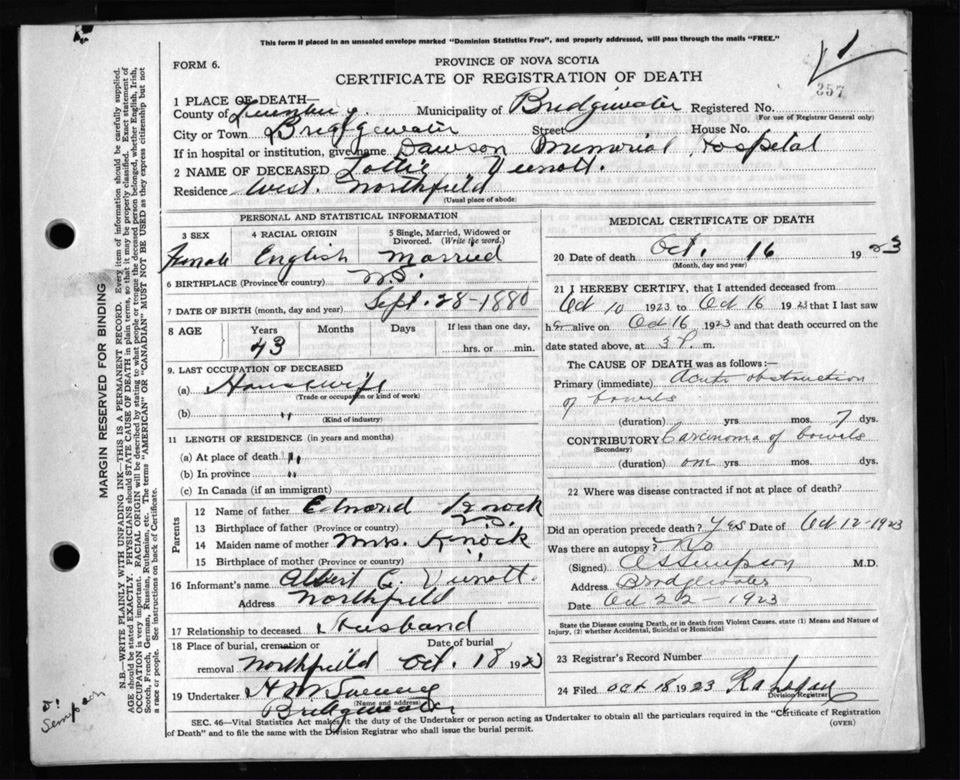 This form if placed in an unsealed envelope marked "Dominion Statistics Free", and properly addressed, will pass through the mails "FREE."
1
357
FORM 6.
PROVINCE OF NOVA SCOTIA
CERTIFICATE OF REGISTRATION OF DEATH
1 PLACE OF DEATH—
County of Lunenburg. Municipality of Bridgewater Registered No.
(For use of Registrar General only)
City or Town Bridgewater Street House No.
If in hospital or institution, give name Dawson Memorial Hospital
2 NAME OF DECEASED Lottie Veinott.
Residence West Northfield
(Usual place of abode)
PERSONAL AND STATISTICAL INFORMATION
3 SEX 4 RACIAL ORIGIN 5 Single, Married, Widowed or Divorced. (Write the word.)
Female English Married
6 BIRTHPLACE (Province or country) N.S.
7 DATE OF BIRTH (month, day and year) Sept. 28-1880
8 AGE Years Months Days If less than one day,
43 hrs. or min.
9. LAST OCCUPATION OF DECEASED
(a) Housewife
(Trade or occupation or kind of work)
(b) "
(Kind of industry)
11 LENGTH OF RESIDENCE (in years and months)
(a) At place of death "
(b) In province "
(c) In Canada (if an immigrant)
Parents
12 Name of father Edmond
13 Birthplace of father (Province or country) N.S.
14 Maiden name of mother Mrs.
15 Birthplace of mother (Province or country) "
16 Informant's name Albert C. Veinott.
Address Northfield
17 Relationship to deceased Husband
18 Place of burial, cremation or removal Northfield Date of burial Oct. 18 1923
19 Undertaker H
(Name and address)
Bridgewater
MEDICAL CERTIFICATE OF DEATH
20 Date of death Oct. 16 1923
(Month, day and year)
21 I HEREBY CERTIFY, that I attended deceased from
Oct 10 1923 to Oct 16 1923 that I last saw
h alive on Oct 16 1923 and that death occurred on the
date stated above, at 3 P. m.
The CAUSE OF DEATH was as follows:—
Primary (immediate) Acute obstruction
of bowels
(duration) yrs (mos. 7 dys.
CONTRIBUTORY Carcinoma of bowels
(Secondary)
(duration) one yrs mos. dys.
22 Where was disease contracted if not at place of death?
Did an operation precede death? Yes Date of Oct 12-1923
Was there an autopsy? No
(Signed) Simpson M.D.
Address Bridgewater
Date Oct 22-1923
State the Disease causing Death, or in death from Violent Causes, state (1) Means and Nature of Injury, (2) whether Accidental, Suicidal or Homicidal
23 Registrar's Record Number
24 Filed Oct 18 1923
Division Registrar
SEC. 46—Vital Statistics Act makes it the duty of the Undertaker or person acting as Undertaker to obtain all the particulars required in the "Certificate of Registration
of Death" and to file the same with the Division Registrar who shall issue the burial permit.
(OVER)
MARGIN RESERVED FOR BINDING
N.B.—WRITE PLAINLY WITH UNFADING INK—THIS IS A PERMANENT RECORD. Every item of information should be carefully supplied.
AGE should be stated EXACTLY. PHYSICIANS should STATE CAUSE OF DEATH in plain terms, so that it may be properly classified. Exact statement of
OCCUPATION is very important. RACIAL ORIGIN will be described by stating to what people or tongue the deceased person belonged, whether English, Irish,
Scotch, French, German, Russian, Ruthenian, etc. The terms "AMERICAN" or "CANADIAN" MUST NOT BE USED as they express citizenship but not
a race or people. See instructions on back of Certificate.